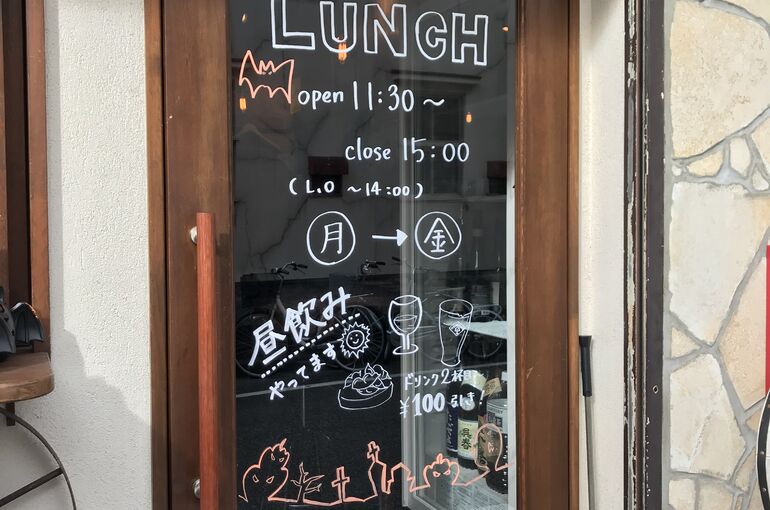 LUNCH
open 11:30 ~
close 15:00
(L.O ~14:00)
月 → 金
昼飲み
やってます
ドリンク2杯目
¥100引き!
呉春